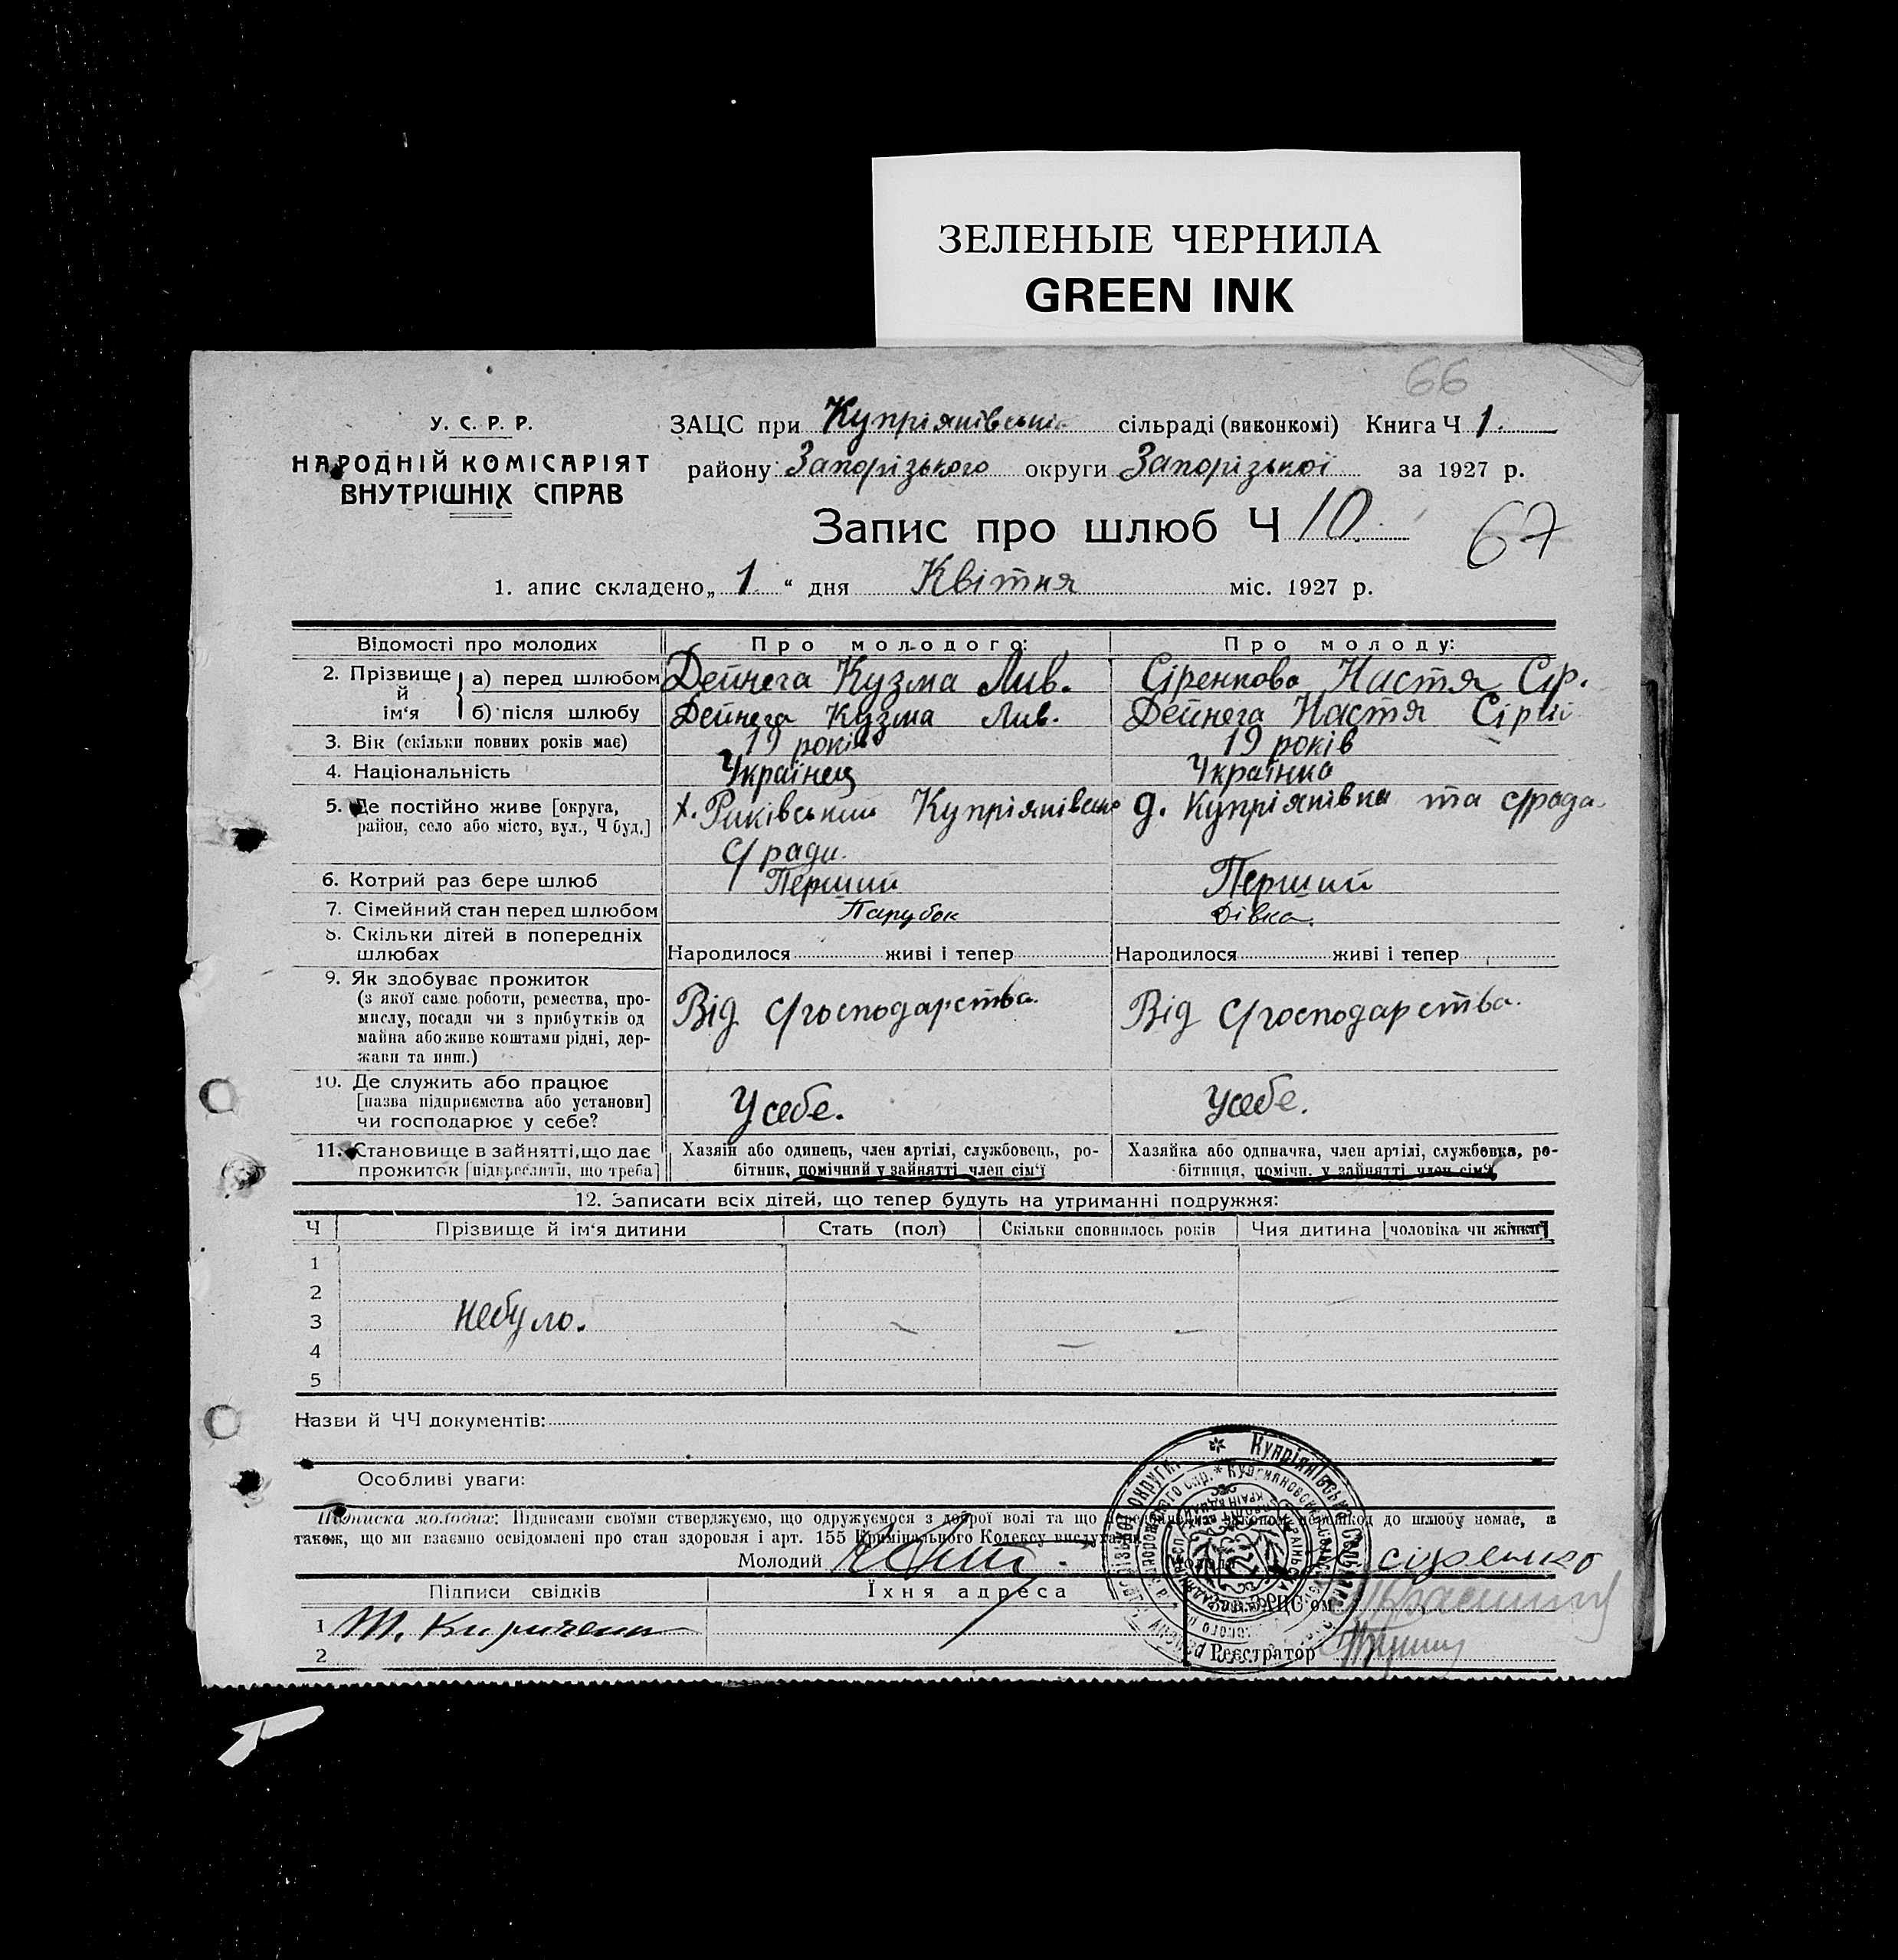 ЗЕЛЕНЫЕ ЧЕРНИЛА
GREEN INK
66
У. С. Р. Р.
НАРОДНІЙ КОМІСАРІЯТ
ВНУТРІШНІХ СПРАВ
ЗАЦС при Купріянівські сільраді (виконкомі) Книга Ч 1.
району Запорізького округи Запорізької за 1927 р.
Запис про шлюб Ч 10.
67
1. апис складено „ 1 “ дня Квітня міс. 1927 р.
Відомості про молодих Про молодого: Про молоду:
2. Прізвище й ім'я
а) перед шлюбом Дейнега Кузма Лив. Сіренкова Настя Сір.
б) після шлюбу Дейнега Кузма Лив. Дейнега Настя
3. Вік (скільки повних років має) 19 років 19 років
4. Національність Українец Українка
5. Де постійно живе [округа, район, село або місто, вул., Ч буд.]
х. Купріянівсько
с/ради.
д. Купріянівка та с/рада
6. Котрий раз бере шлюб Перший Перший
7. Сімейний стан перед шлюбом Парубок Дівка.
8. Скільки дітей в попередніх шлюбах Народилося живі і тепер Народилося живі і тепер
9. Як здобуває прожиток
(з якої саме роботи, ремества, про-
мислу, посади чи з прибутків од
майна або живе коштами рідні, дер-
жави та инш.)
Від с/господарства. Від с/господарства.
10. Де служить або працює
[назва підприємства або установи]
чи господарює у себе?
Усебе. Усебе.
11. Становище в зайнятті, що дає
прожиток [підкреслити, що треба]
Хазяїн або одинець, член артілі, службовець, ро-
бітник, помічний у зайнятті член сім'ї
Хазяйка або одиначка, член артілі, службовка, ро-
бітниця, помічн. у зайнятті член сім'ї
12. Записати всіх дітей, що тепер будуть на утриманні подружжя:
Ч Прізвище й ім'я дитини Стать (пол) Скільки сповнилось років Чия дитина [чоловіка чи жінки]
1
2
3 небуло.
4
5
Назви й ЧЧ документів:
Особливі уваги:
Підписка молодих: Підписами своїми стверджуємо, що одружуємося з доброї волі та що перешкод до шлюбу немає, а
також, що ми взаємно освідомлені про стан здоровля і арт. 155 Кримінального Кодексу вислухали.
Молодий сіренко
Підписи свідків Їхня адреса
1
2
Реєстратор